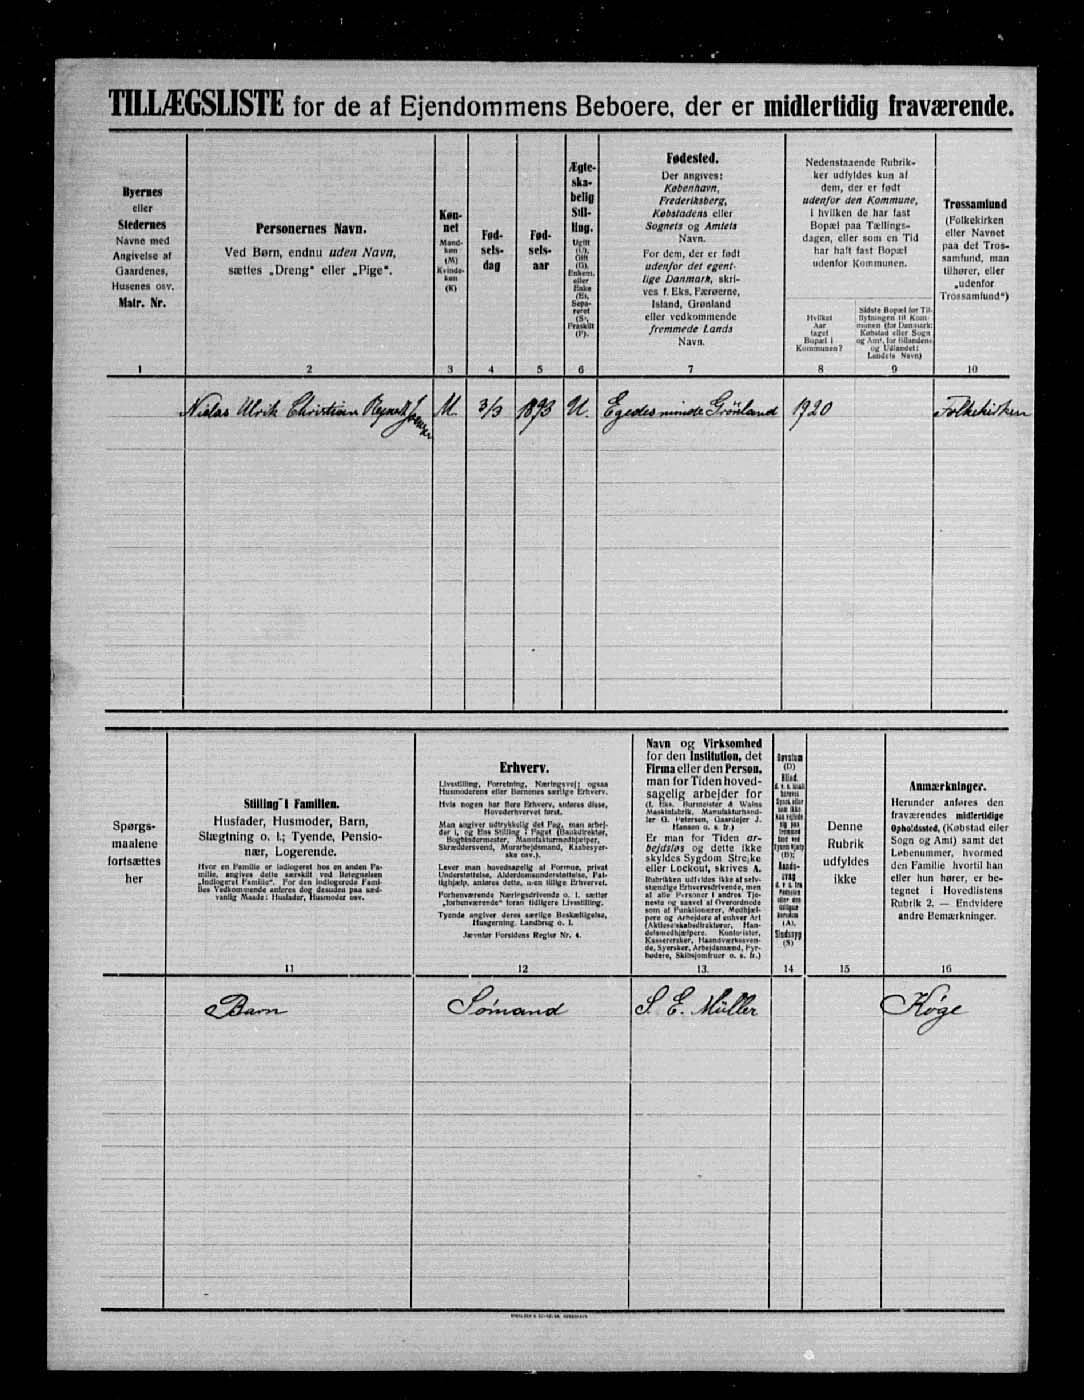 TILLÆGSLISTE for de af Ejendommens Beboere, der er midlertidig fraværende.
Byernes
eller
Stedernes
Navne med
Angivelse af
Gaardenes,
Husenes osv.
Matr. Nr.
Personernes Navn.
Ved Børn, endnu uden Navn,
sættes „Dreng“ eller „Pige“.
Køn-
net
Mand-
køn
(M)
Kvinde-
køn
(K)
Fød-
sels-
dag
Fød-
sels-
aar
Ægte-
ska-
belig
Stil-
ling.
Ugift
(U),
Gift
(G),
Enkem.
eller
Enke
(E),
Sepa-
reret
(S),
Fraskilt
(F).
Fødested.
Der angives:
København,
Frederiksberg,
Købstadens eller
Sognets og Amtets
Navn.
For dem, der er født
udenfor det egent-
lige Danmark, skri-
ves f. Eks. Færøerne,
Island, Grønland
eller vedkommende
fremmede Lands
Navn.
Nedenstaaende Rubrik-
ker udfyldes kun af
dem, der er født
udenfor den Kommune,
i hvilken de har fast
Bopæl paa Tællings-
dagen, eller som en Tid
har haft fast Bopæl
udenfor Kommunen.
Hvilket
Aar
taget
Bopæl i
Kommunen?
Sidste Bopæl før Til-
flytningen til Kom-
munen (for Danmark:
Købstad eller Sogn
og Amt, for Bilandene
og Udlandet:
Landets Navn)
Trossamfund
(Folkekirken
eller Navnet
paa det Tros-
samfund, man
tilhører, eller
„udenfor
Trossamfund“)
1 2 3 4 5 6 7 8 9 10
Niclas Ulrik Christian M. 3/3 1893 U. Egedesminde Grönland 1920 Folkekirken
Spørgs-
maalene
fortsættes
her
Stilling i Familien.
Husfader, Husmoder, Barn,
Slægtning o. l.; Tyende, Pensio-
nær, Logerende.
Hvor en Familie er indlogeret hos en anden Fa-
milie, angives dette særskilt ved Betegnelsen
„Indlogeret Familie“. For den indlogerede Fami-
lies Vedkommende anføres dog desuden paa sæd-
vanlig Maade: Husfader, Husmoder osv.
Erhverv.
Livsstilling, Forretning, Næringsvej; ogsaa
Husmoderens eller Børnenes særlige Erhverv.
Hvis nogen har flere Erhverv, anføres disse,
Hovederhvervet først.
Man angiver udtrykkelig det Fag, man arbej-
der i, og Ens Stilling i Faget (Bankdirektør,
Bogbindermester, Manufakturmedhjælper,
Skræddersvend, Murarbejdsmand, Kasbesyer-
ske osv.).
Lever man hovedsagelig af Formue, privat
Understøttelse, Alderdomsunderstøttelse, Fat-
tighjælp, anføres dette, uden tillige Erhvervet.
Forhenværende Næringsdrivende o. l. sætter
„forhenværende“ foran tidligere Livsstilling.
Tyende angiver deres særlige Beskæftigelse,
Husgerning, Landbrug o. l.
Jævnfør Forsidens Regler Nr. 4.
Navn og Virksomhed
for den Institution, det
Firma eller den Person,
man for Tiden hoved-
sagelig arbejder for
(f. Eks. Burmeister & Wains
Maskinfabrik, Manufakturhand-
ler O. Petersen, Gaardejer J.
Hansen o. s. fr.)
Er man for Tiden ar-
bejdsløs og dette ikke
skyldes Sygdom Strejke
eller Lockout, skrives A.
Rubrikken udfyldes ikke af selv-
stændige Erhvervsdrivende, men
af alle Personer i andres Tje-
neste og saavel af Overordnede
som af Funktionærer, Medhjæl-
pere og Arbejdere af enhver Art
(Aktieselskabsdirektører, Han-
delsmedhjælpere, Kontorister,
Kasserersker, Haandværkssven-
de, Syersker, Arbejdsmænd, Fyr-
bødere, Skibsjomfruer o. s. fr.)
Døvstum
(D)
Blind
(B);
Aands-
svag
(A),
Sindssyg
(S)
Denne
Rubrik
udfyldes
ikke
Anmærkninger.
Herunder anføres den
fraværendes midlertidige
Opholdssted, (Købstad eller
Sogn og Amt) samt det
Løbenummer, hvormed
den Familie hvortil han
eller hun hører, er be-
tegnet i Hovedlistens
Rubrik 2. — Endvidere
andre Bemærkninger.
11 12 13. 14 15 16
Barn Sømand S. E. Müller Køge